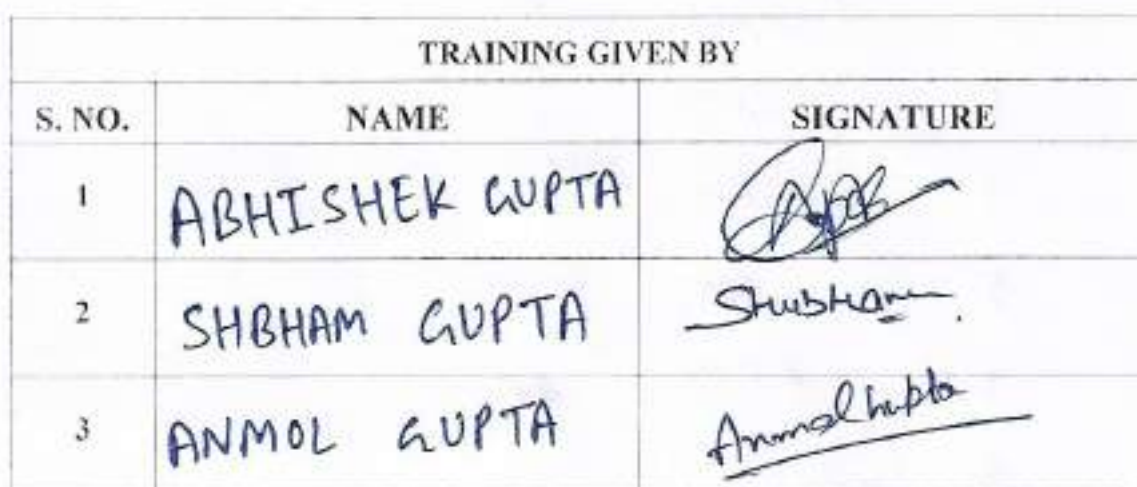 TRAINING GIVEN BY
S. NO. NAME SIGNATURE
1 ABHISHEK GUPTA
2 SHBHAM GUPTA Shubham
3 ANMOL GUPTA Anmol Gupta